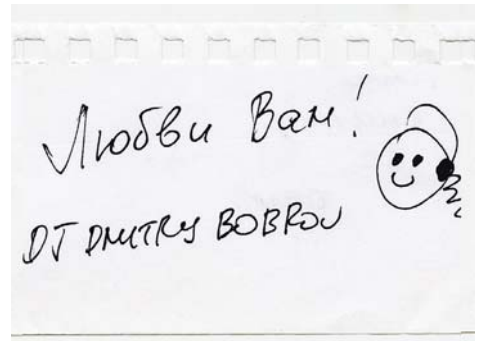 Любви Вам!
DJ DMITRY BOBROV